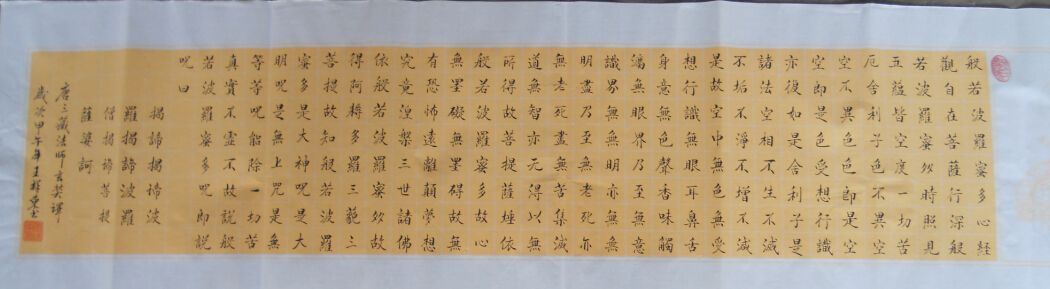 般若波羅蜜多心経
觀自在菩薩行深般
若波羅蜜多時照見
五蘊皆空度一切苦
厄舍利子色不異空
空不異色色即是空
空即是色受想行識
亦復如是舍利子是
諸法空相不生不滅
不垢不淨不增不減
是故空中無色無受
想行識無眼耳鼻舌
身意無色聲香味觸
法無眼界乃至無意
識界無明亦無無
明盡乃至無老死亦
無老死盡無苦集滅
道無智亦无得以無
所得故菩提薩埵依
般若波羅蜜多故心
無罣礙無罣碍故無
有恐怖遠離顛夢想
究竟涅槃三世諸佛
依般若波羅蜜多故
得阿耨多羅三藐三
菩提故知般若波羅
蜜多是大神呪是大
明呪是無上咒是無
等等呪能除一切苦
真實不虛不故說般
若波羅蜜多呪即說
呪曰
揭諦揭諦波
羅揭諦波羅
僧揭諦菩提
薩婆訶
唐三藏法師玄奘譯
歲次甲午年王輝書